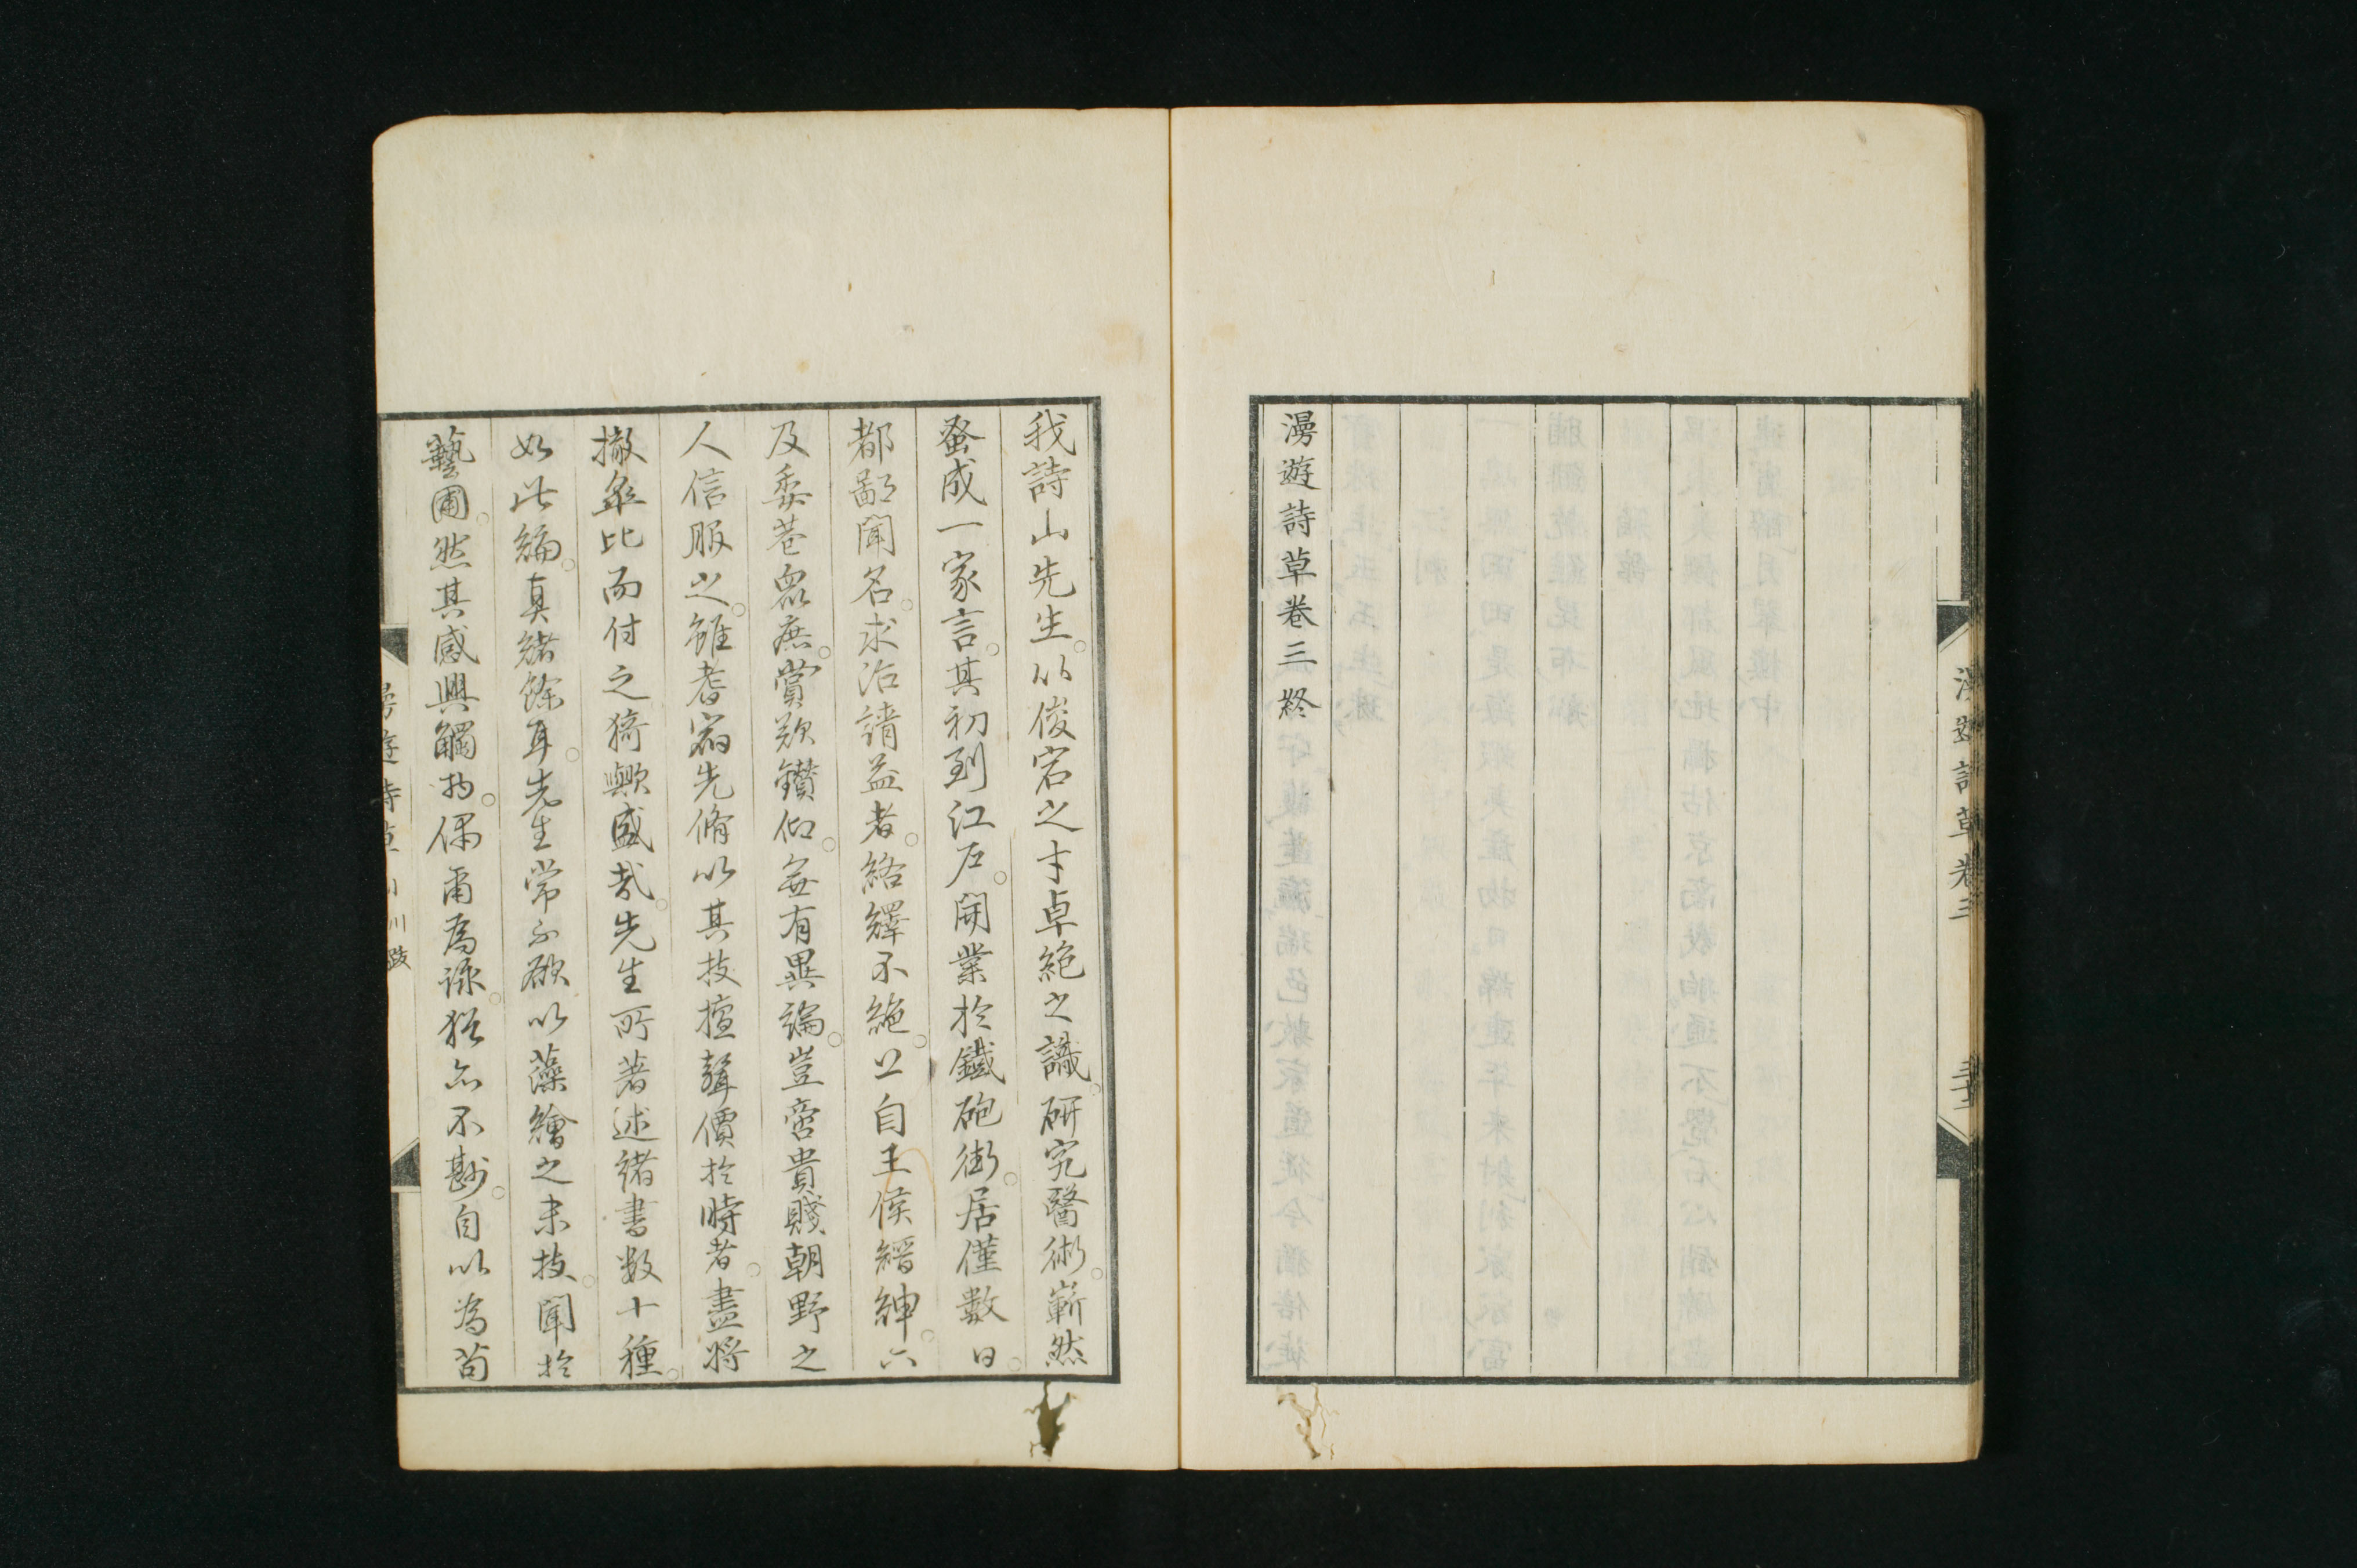 漫遊詩草卷三終
漫遊詩草卷三 三十二
我詩山先生。以俊宕之才卓絶之識。研究醫術。嶄然
蚤成一家言。其初到江戸。開業於鐵砲街。居僅數日。
都鄙聞名。求治請益者。絡繹不絶。上自王侯縉紳。下
及委巷衆庶。賞歎鑽仰。無有異論。豈啻貴賤朝野之
人信服之。雖耆宿先脩以其技擅聲價於時者。盡將
撤皋比而付之猗歟盛哉。先生所著述緒書数十種。
如此編。真緒餘耳。先生常不欲以藻繪之末技。聞於
藝圃。然其感興觸物。偶爾為詠。猶亦不尠。自以為苟
漫遊詩草 跋